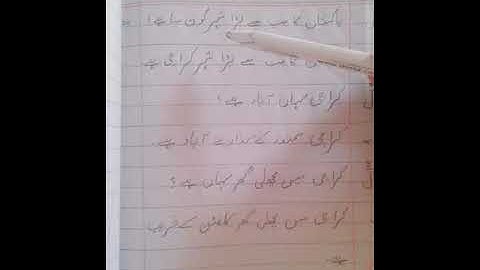 پاکستان کا سب سے بڑا شہر کون سا ہے؟
کا سب سے بڑا شہر کراچی ہے
کراچی کہاں آباد ہے؟
کراچی سمندر کے کنارے آباد ہے
کراچی میں مچھلی گھر کہاں ہے؟
کراچی میں مچھلی گھر کلفٹن کے قریب
ہے۔